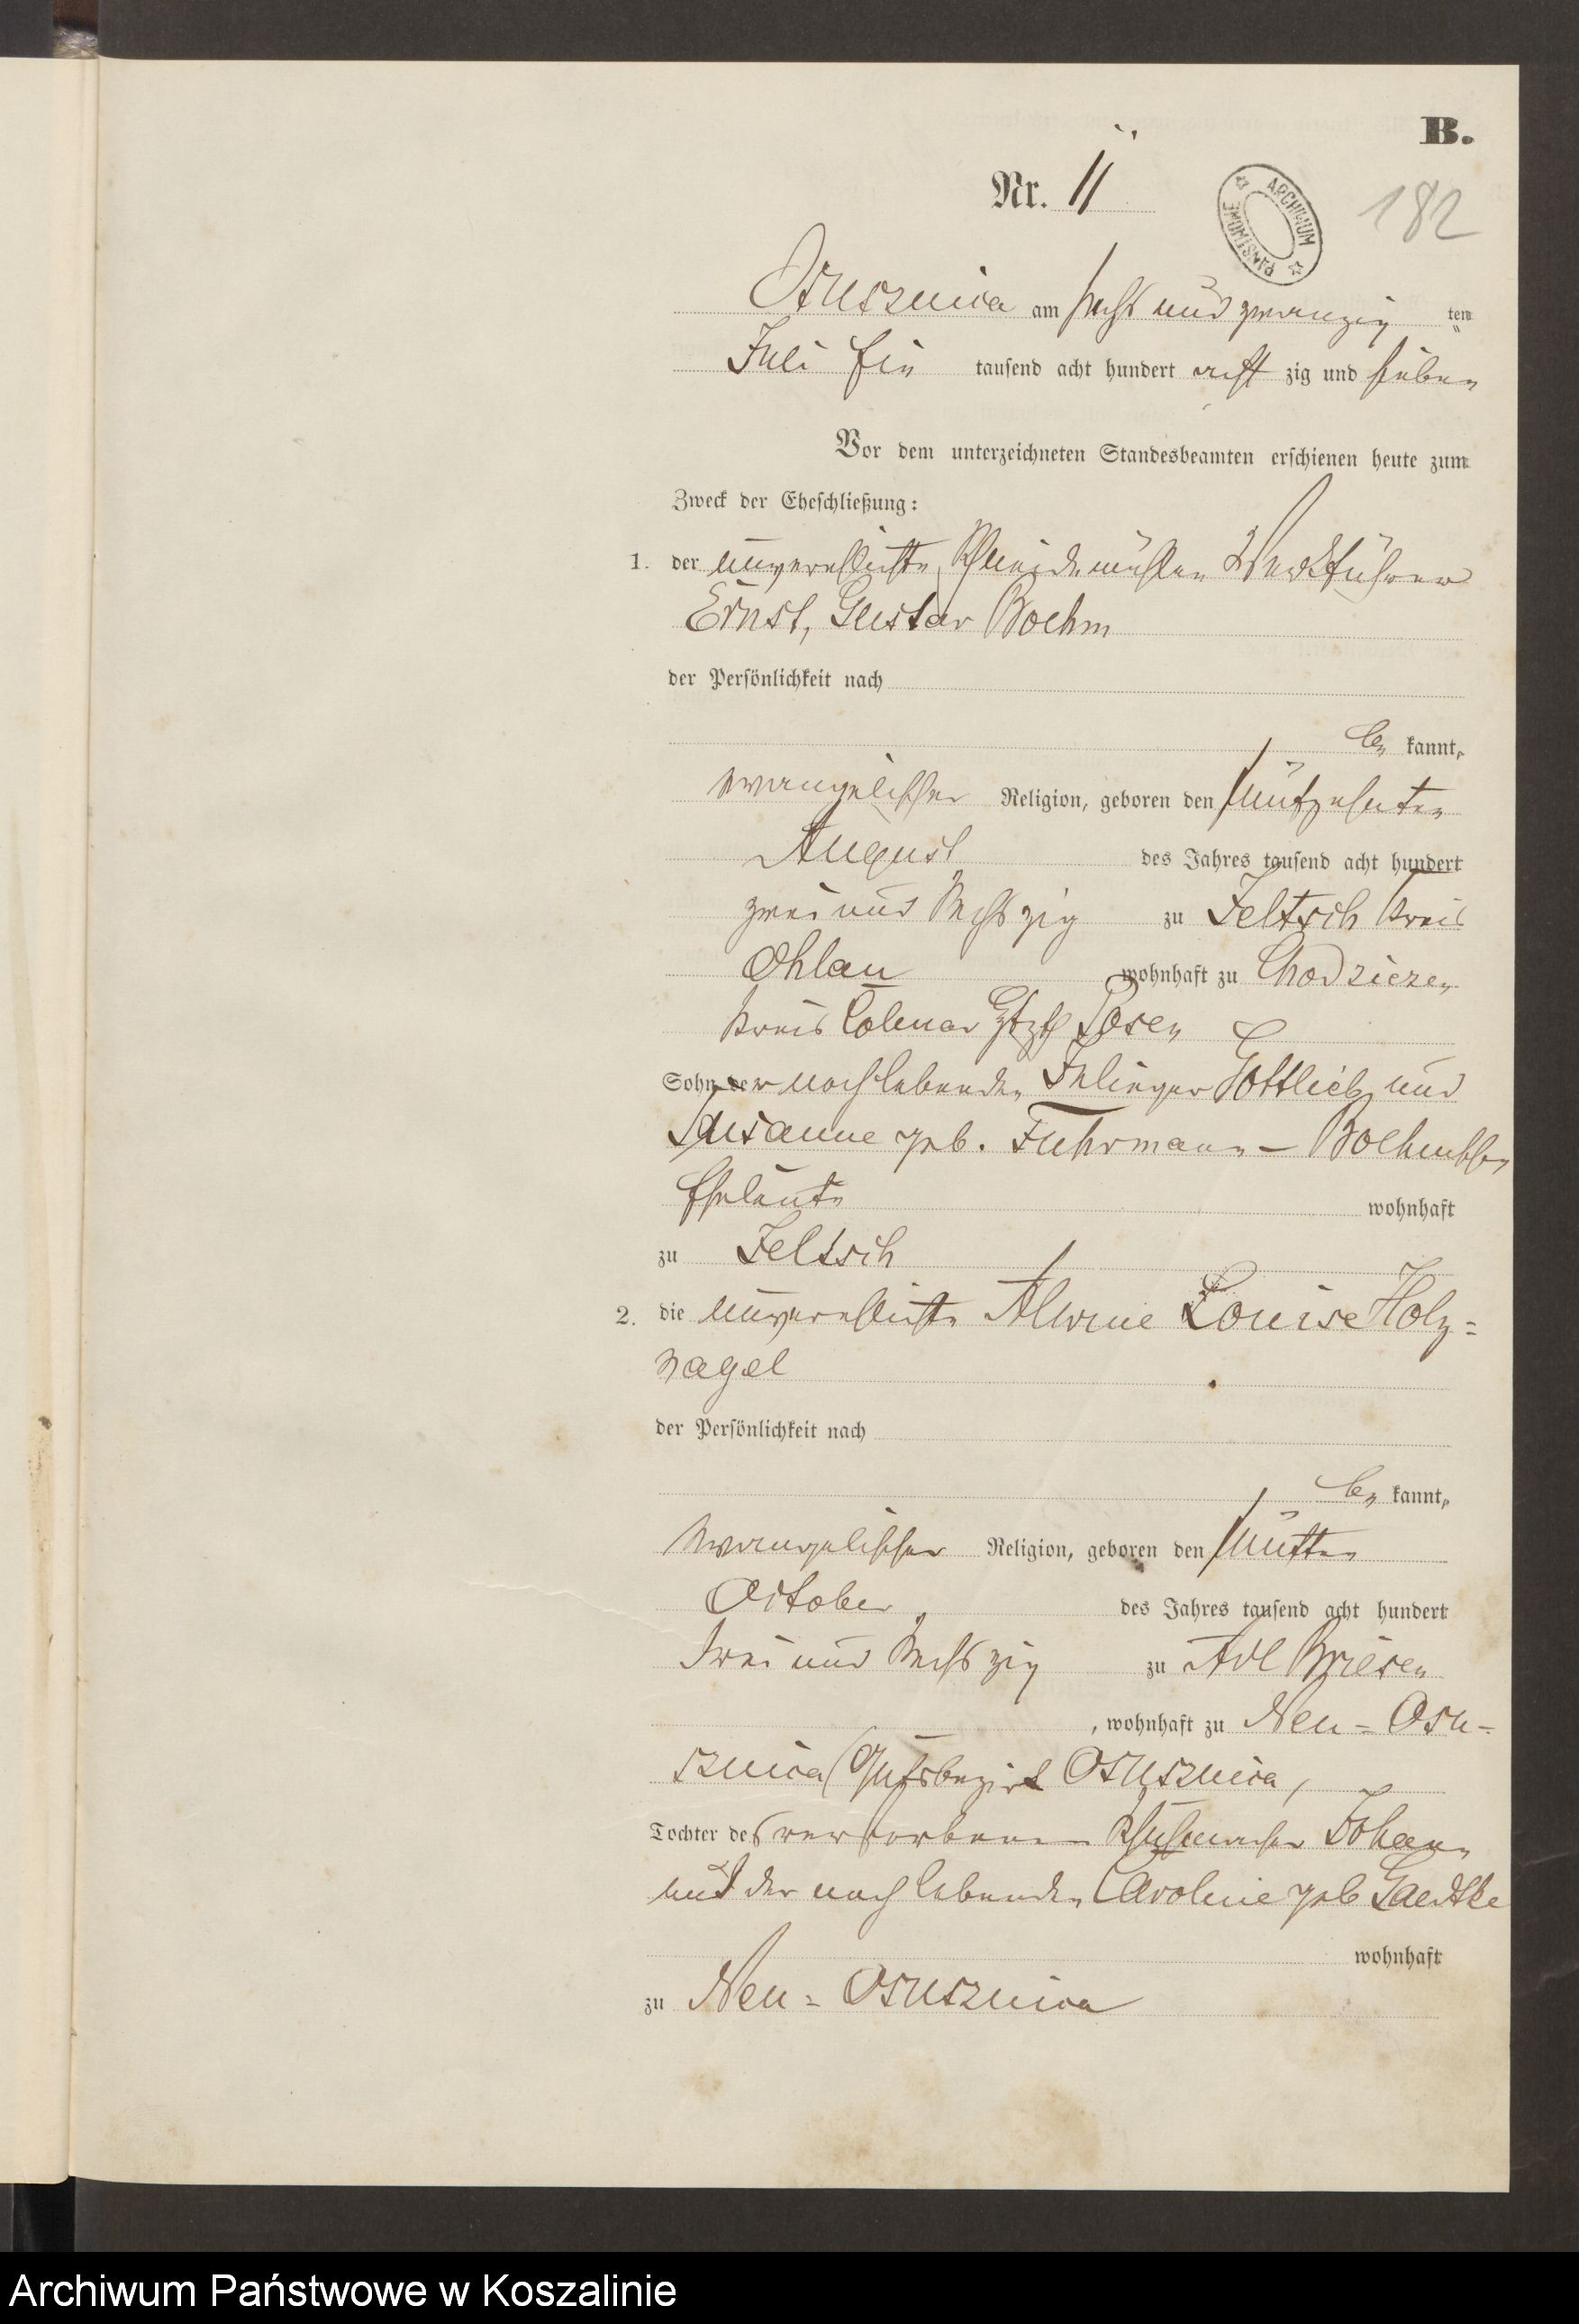 B.
Nr. 11
ARCHIWUM PAŃSTWOWE
182
Osusznica am sechs und zwanzig ten
Juli Ein tausend acht hundert acht zig und sieben
Vor dem unterzeichneten Standesbeamten erschienen heute zum
Zweck der Eheschließung:
1. der unverehlichte, Schneidemühlen Werkführer
Ernst, Gustav Boehm
der Persönlichkeit nach
be kannt,
evangelischer Religion, geboren den fünfzehnten
August des Jahres tausend acht hundert
zwei und sechszig zu Jeltsch Kreis
Ohlau wohnhaft zu Chodziezen
Kreis Colmar Posen
Sohn der noch lebenden Gottlieb und
Susanne geb. Fuhrmann - Boehmschen
Eheleute wohnhaft
zu Jeltsch
2. die unverehlichte Alwine Louise Holz=
nagel
der Persönlichkeit nach
be kannt,
evangelischer Religion, geboren den fünften
October des Jahres tausend acht hundert
drei und sechszig zu Adl Briesen
, wohnhaft zu Neu = Osu=
sznica (Gutsbezirk Osusznica,
Tochter des verstorbenen Schuhmacher Johann
und der noch lebenden Caroline geb Gaedtke
wohnhaft
zu Neu = Osusznica
Archiwum Państwowe w Koszalinie